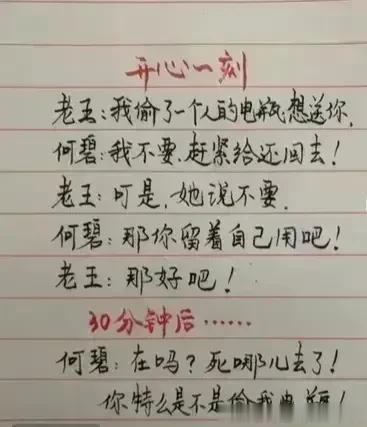 开心一刻
老王:我偷了一个人的电瓶,想送你.
何碧:我不要.赶紧给还回去!
老王:可是,她说不要.
何碧:那你留着自己用吧!
老王:那好吧!
30分钟后……
何碧:在吗?死哪儿去了!
你特么是不是偷我